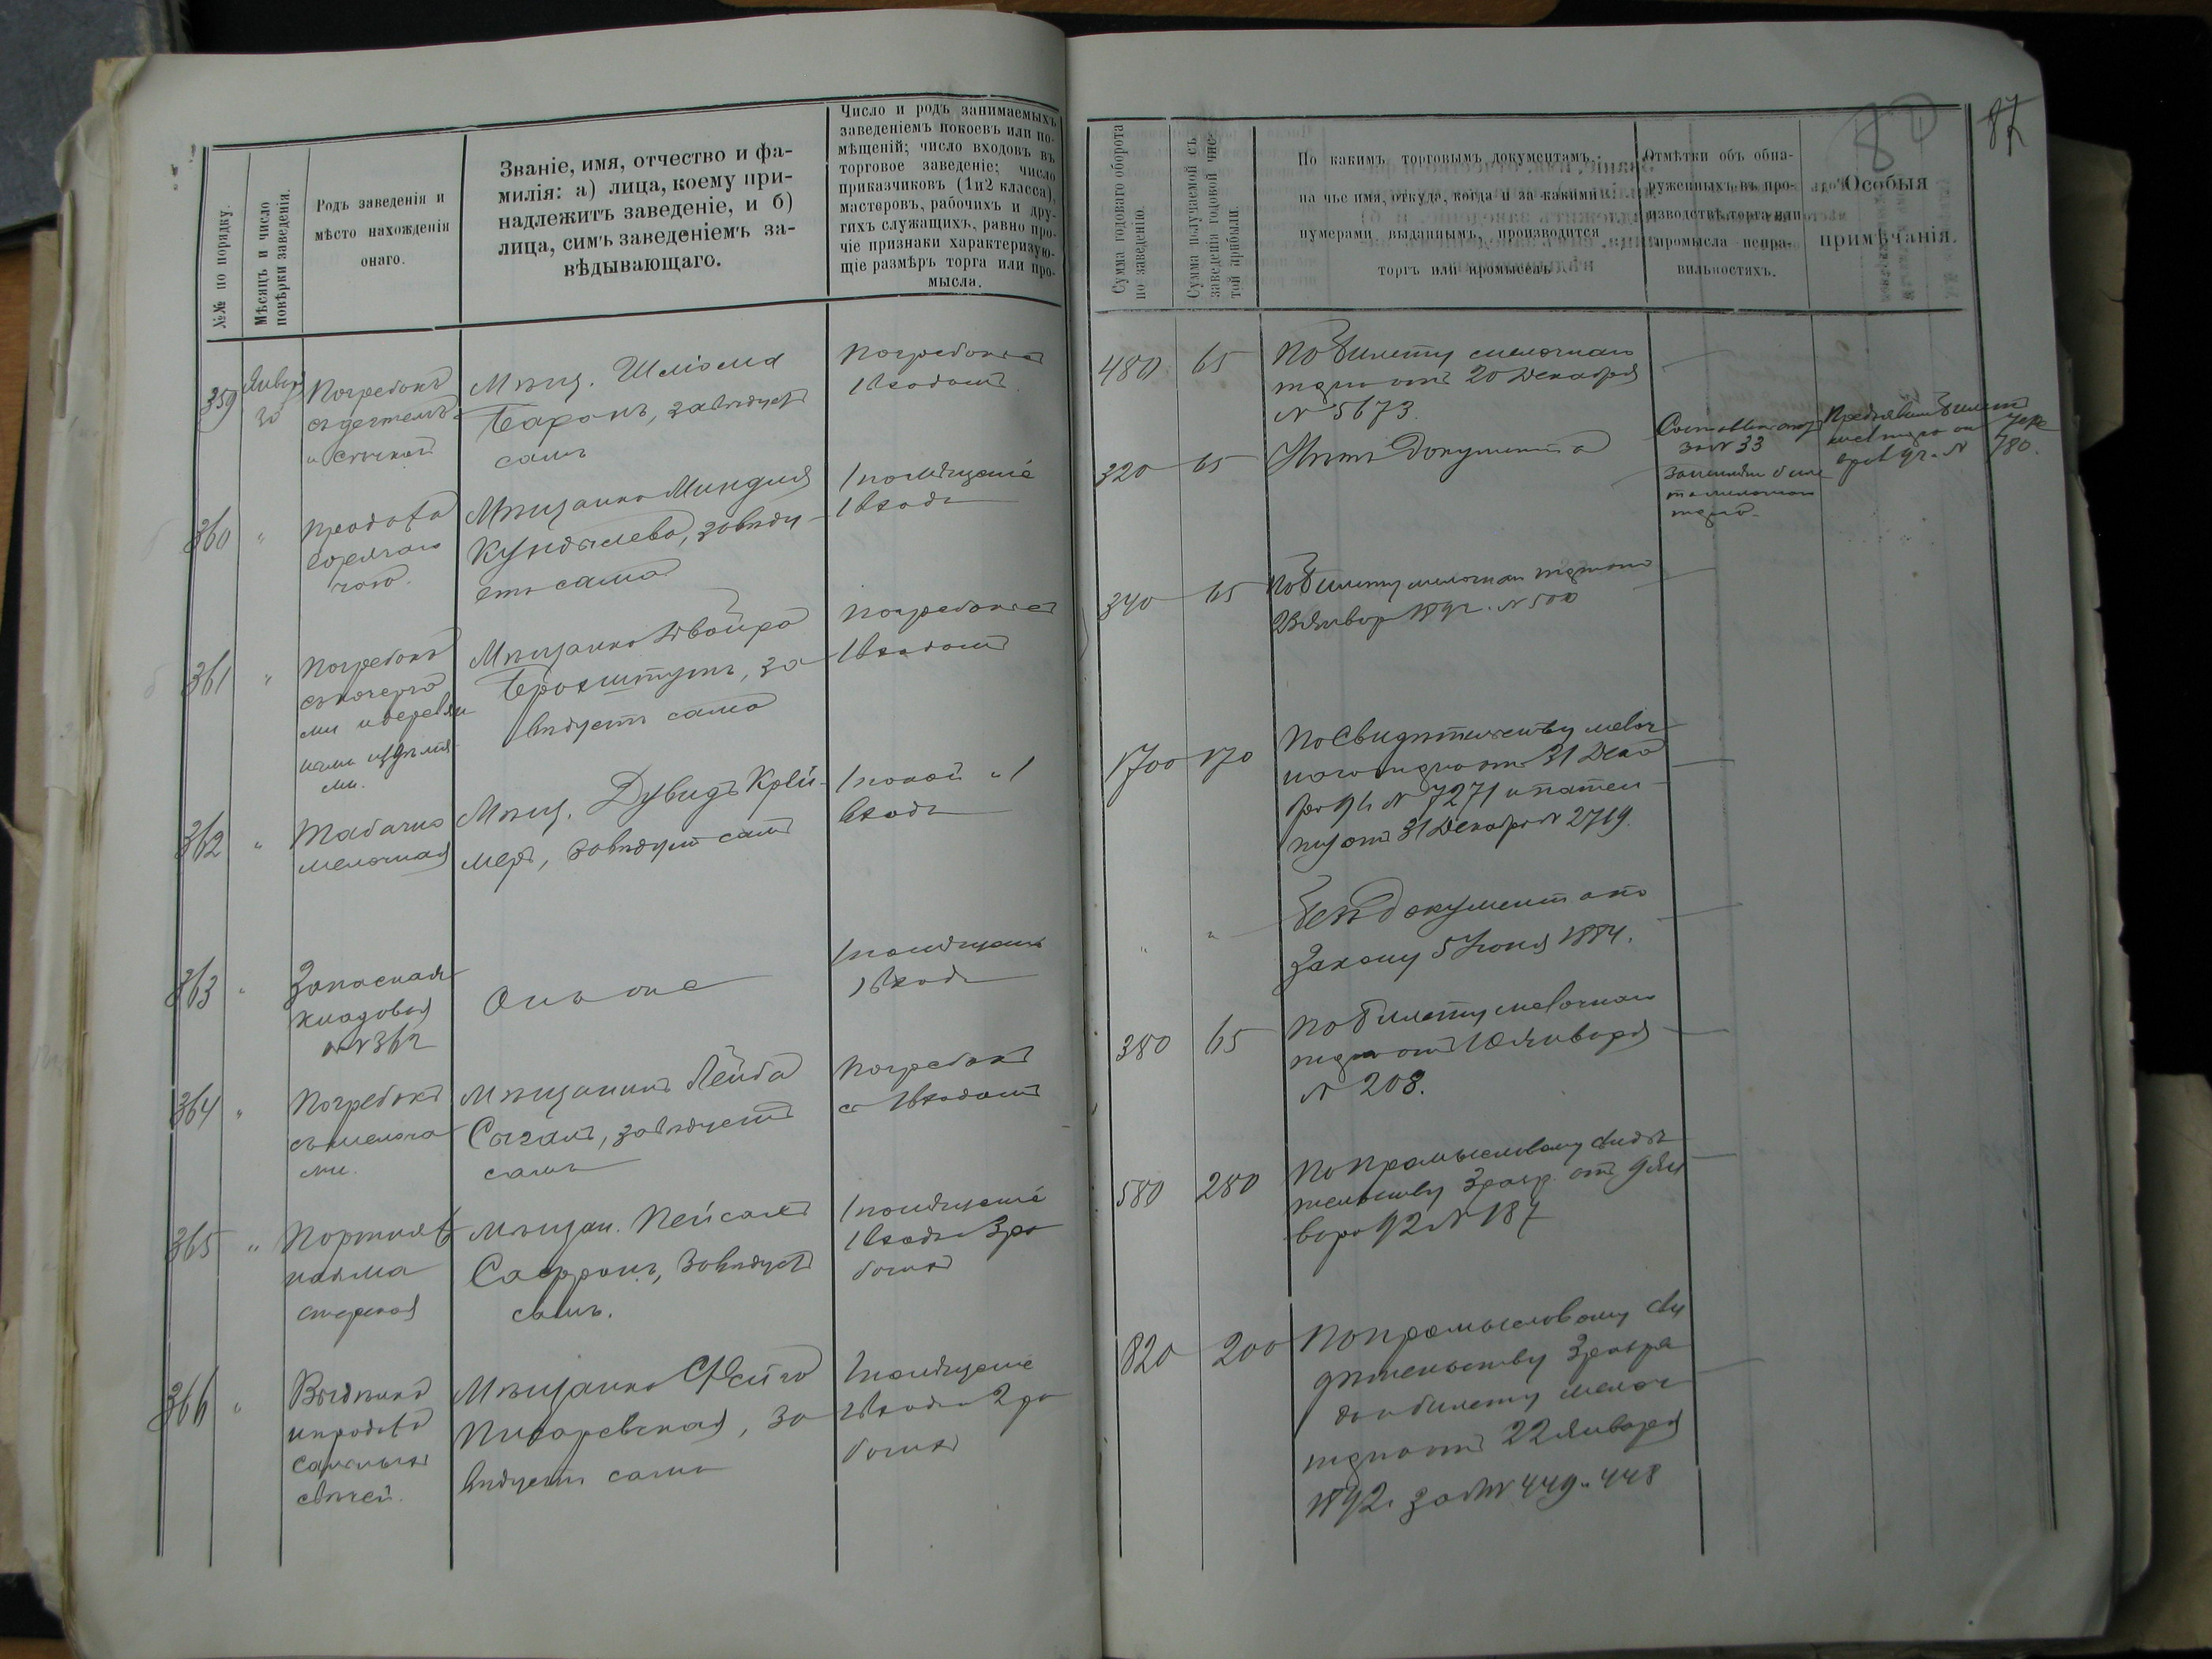 87
80
№№ по порядку.
Мѣсяцъ и число
повѣрки заведенія.
Родъ заведенія и
мѣсто нахожденія
онаго.
Званіе, имя, отчество и фа-
милія: а) лица, коему при-
надлежитъ заведеніе, и б)
лица, симъ заведеніемъ за-
вѣдывающаго.
Число и родъ занимаемыхъ
заведеніемъ покоевъ или по-
мѣщеній; число входовъ въ
торговое заведеніе; число
приказчиковъ (1и2 класса),
мастеровъ, рабочихъ и дру-
гихъ служащихъ, равно про-
чіе признаки характеризую-
щіе размѣръ торга или про-
мысла.
Сумма годоваго оборота
по заведенію.
Сумма получаемой съ
заведенія годовой чис-
той прибыли.
По какимъ торговымъ документамъ,
на чье имя, откуда, когда и за какими
нумерами выданнымъ, производится
торгъ или промыселъ
Отмѣтки объ обна-
руженныхъ въ про-
изводствѣ торга или
промысла непра-
вильностяхъ.
Особыя
примѣчанія.
359
Январ
30
Погребокъ
съ дегтемъ
Мѣщ. Шліома
Баронъ, завѣдует
самъ
Погребокъ
1 входомъ
480
65
По билету мелочнаго
торга отъ 20 Декабря
№ 5673.
360
"
Продажа
горячаго
чаю.
Мѣщанка Миндля
Кундылева, завѣду-
етъ сама
1 помѣщеніе
1 входъ
320
65
Нѣтъ документа
за № 33
торга.
№ 780.
361
"
Погребокъ
ми и деревян
ными издѣлія
ми.
Мѣщанка Двойра
завѣдуетъ сама
Погребокъ
1 входомъ
340
65
По билету мелочнаго торга отъ
23 Январ 1892. № 500
362
"
Табачно
мелочная
Мѣщ. Дувидъ Крей-
меръ, завѣдует самъ
1 покой и 1
входъ
1700
170
По Свидѣтельству мелоч
наго торга отъ 31 Дека
бря 91 № 7271 и патен-
ту отъ 31 Декабря № 2719.
363
"
Запасная
кладовая
№ 362
Онъ же
1 помѣщеніе
1 входъ
"
"
Безъ документа по
Закону 5 Іюня 1884.
364
"
Погребокъ
съ мелоча
ми.
Мѣщанинъ Лейба
Сигалъ, завѣдуетъ
самъ
Погребокъ
съ 1 входомъ
380
65
По билету мелочнаго
торга отъ 10 Января
№ 208.
365
"
Портняж
ная ма
стерская
Мѣщан. Пейсахъ
завѣдуетъ
самъ.
1 помѣщеніе
1 входъ 3 ра
бочихъ
580
280
По промысловому свидѣ
тельству 3 разр. отъ 9 Ян
варя 92 № 187
366
"
Выдѣлка
и продажа
сальныхъ
свѣчей.
Мѣщанка Фейга
Писаревская, за
вѣдуетъ сама
помѣщеніе
входъ 2 ра
бочихъ
820
200
По промысловому сви
дѣтельству 3 разря
да и билету мелоч
торга отъ 22 Января
1892. за №№ 449 и 448